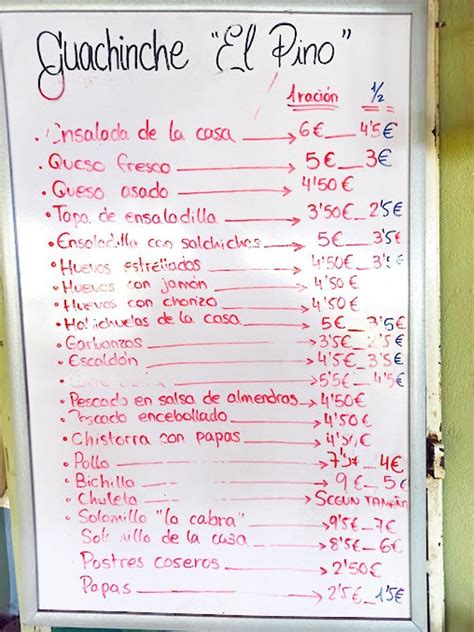 Guachinche "El Pino"
1 ración 1/2
. Ensalada de la casa → 6€ _ 4'5€
. Queso fresco → 5€ _ 3€
. Queso asado → 4'50€
. Tapa de ensaladilla → 3'50€ _ 2'5€
. Ensaladilla con salchichas → 5€ _ 3'5€
. Huevos estrellados → 4'50€ _ 3'5€
. Huevos con jamón → 4'50€
. Huevos con chorizo → 4'50€
. Habichuelas de la casa → 5€ _ 3'5€
. Garbanzos → 3'5€ _ 2'5€
. Escaldón → 4'5€ _ 3'5€
. Carne → 5'5€ _ 4'5€
. Pescado en salsa de almendras → 4'50€
. Pescado encebollado → 4'50€
. Chistorra con papas → 4'5€
. Pollo → 7'5€ _ 4€
. Bichillo → 9€ _ 5€
. Chuleta → SEGÚN TAMAÑO
. Solomillo "lo cabra" → 9'5€ _ 7€
Solomillo de la casa → 8'5€ _ 6€
Postres caseros → 2'50€
Papas → 2'5€ _ 1'5€